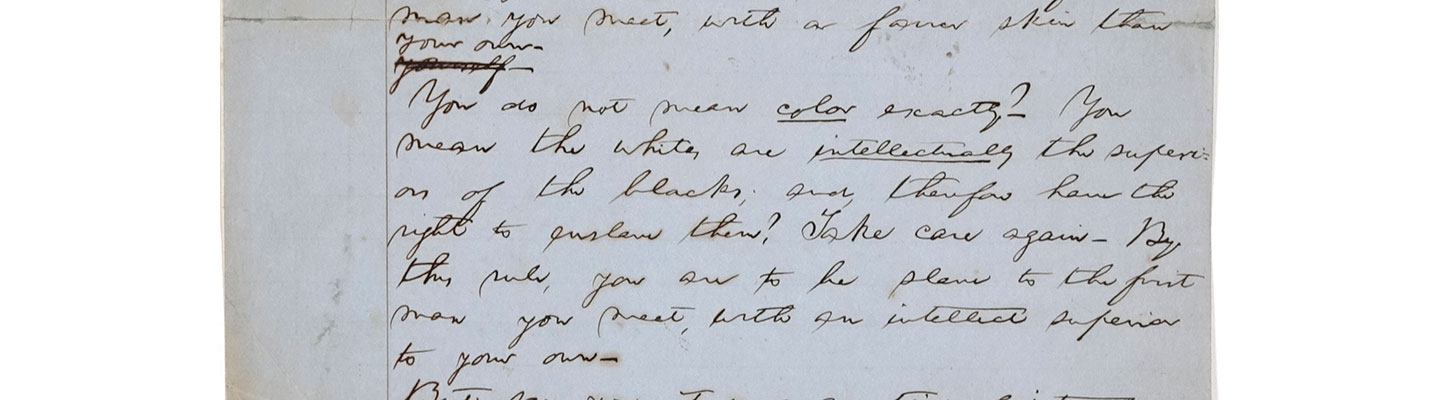 man you meet, with a fairer skin than
your own—
yourself—
You do not mean color exactly?— You
mean the whites are intellectually the superi-
ors of the blacks; and, therefore have the
right to enslave them? Take care again— By
this rule, you are to be slave to the first
man you meet, with an intellect superior
to your own—
But, say you,